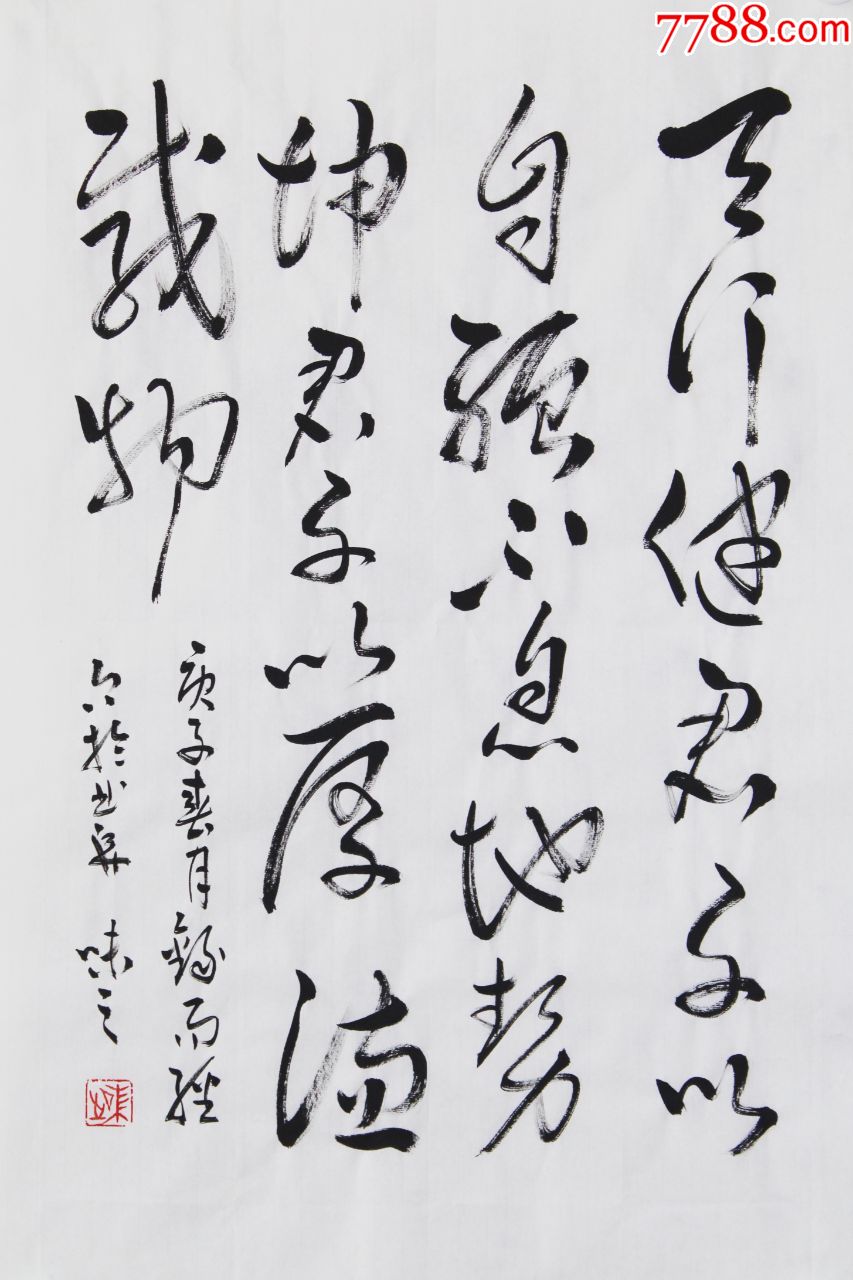 7788.com
天行健君子以
自强不息地势
坤君子以厚德
载物
庚子春月錄經
於书 味之